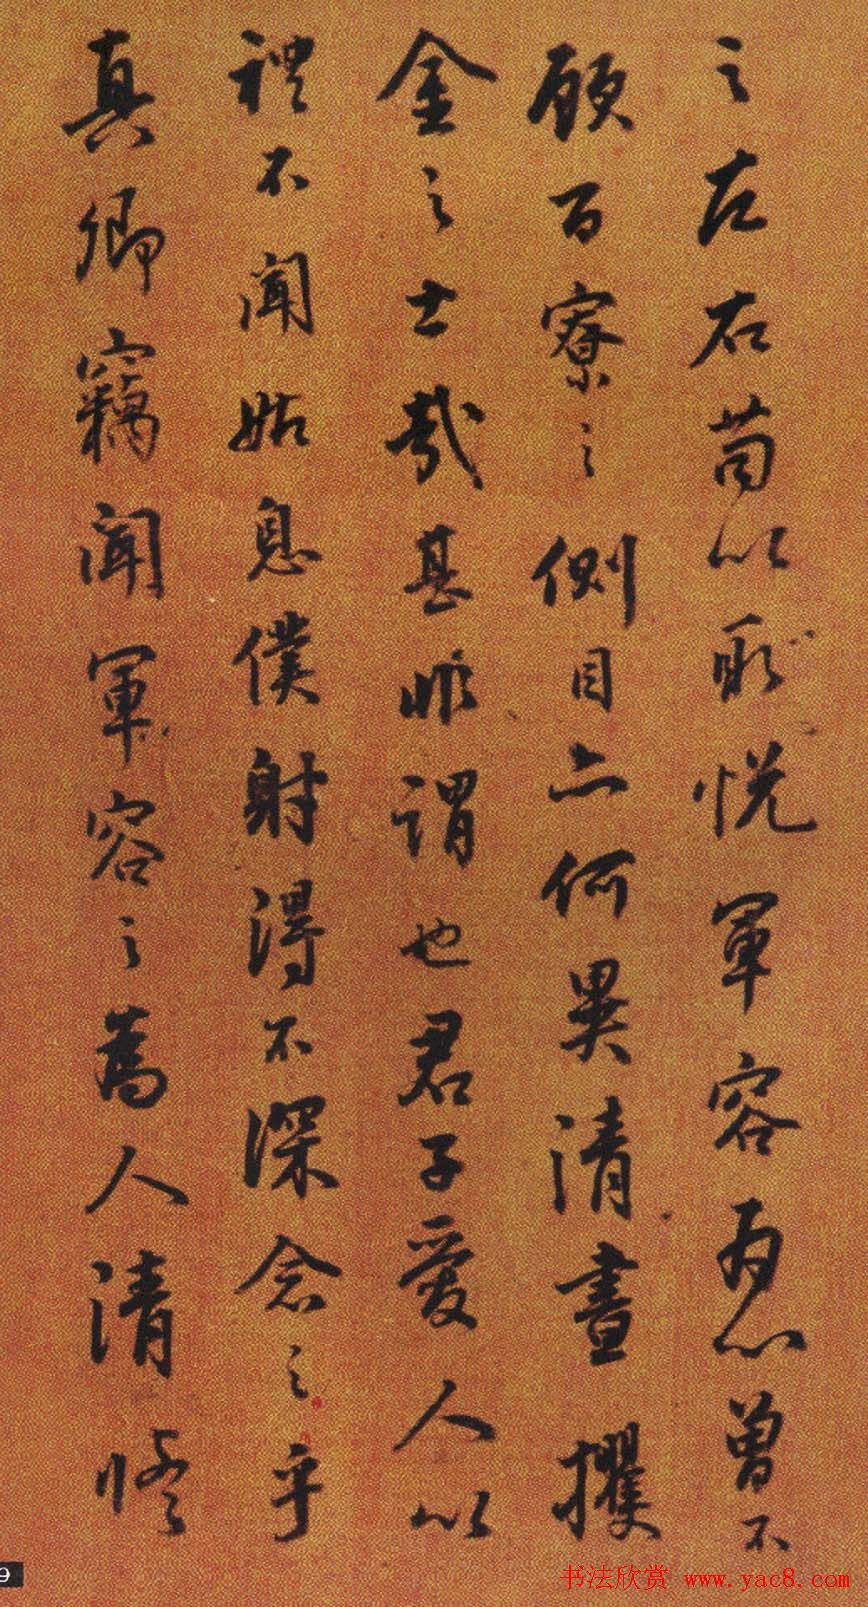 之左右苟以取悦軍容為心曾不
顧百寮之側目亦何異清晝攫
金之士哉甚非謂也君子愛人以
禮不聞姑息僕射得不深念之乎
真卿竊聞軍容之為人清修
9
书法欣赏 www.yac8.com